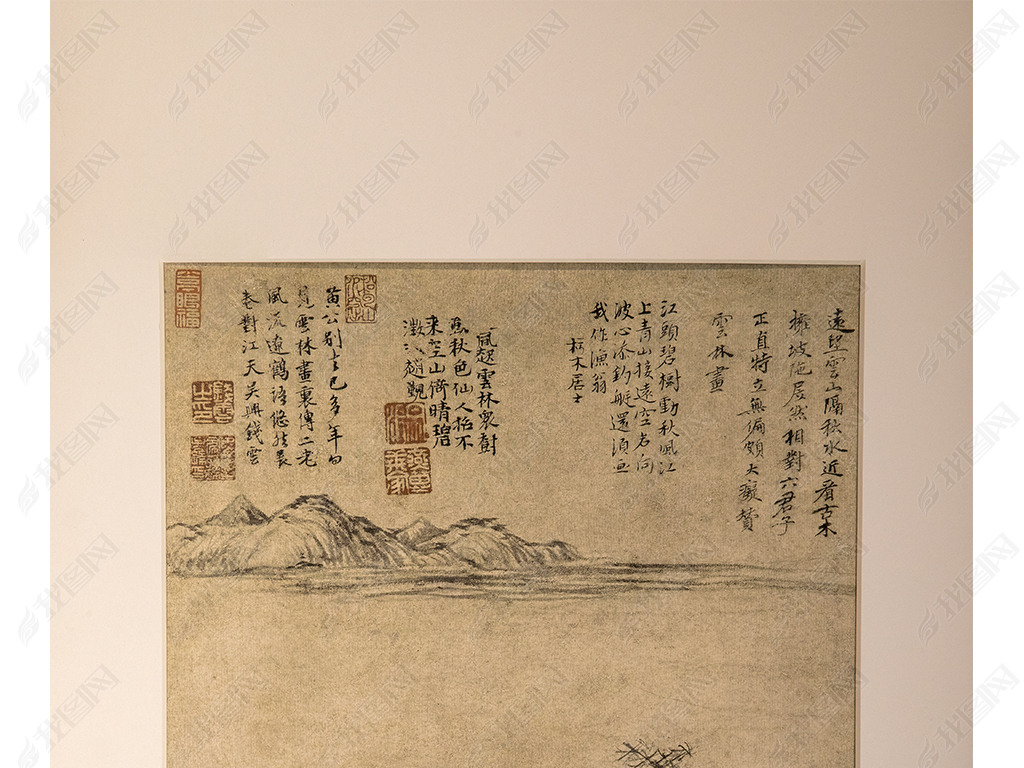 遠望雲山隔秋水近看古木
擁坡陁居然相對六君子
正直特立無偏頗大癡贊
雲林畫
江頭碧樹動秋風江
上青山接遠空若向
波心添釣艇還須畫
我作漁翁
木居士
風起雲林衆樹
秋色仙人招不
來空山倚晴碧
澂江趙覲
黄公别去已多年忽
見雲林畫裏傳二老
風流遼鶴語悠然展
卷對江天吳興錢雲
找图网